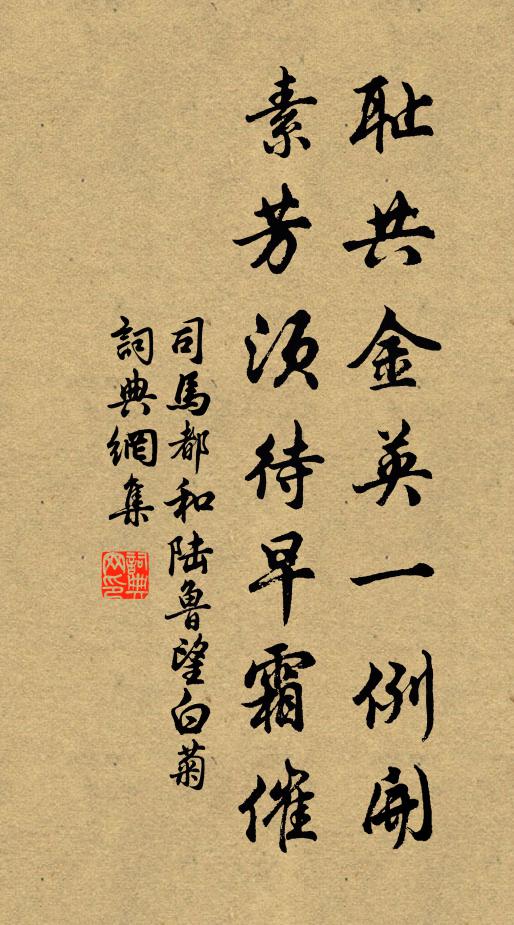 耻共金英一例開
素芳須待早霜催
司馬都和陆魯望白菊
詞典網集
詞典網印